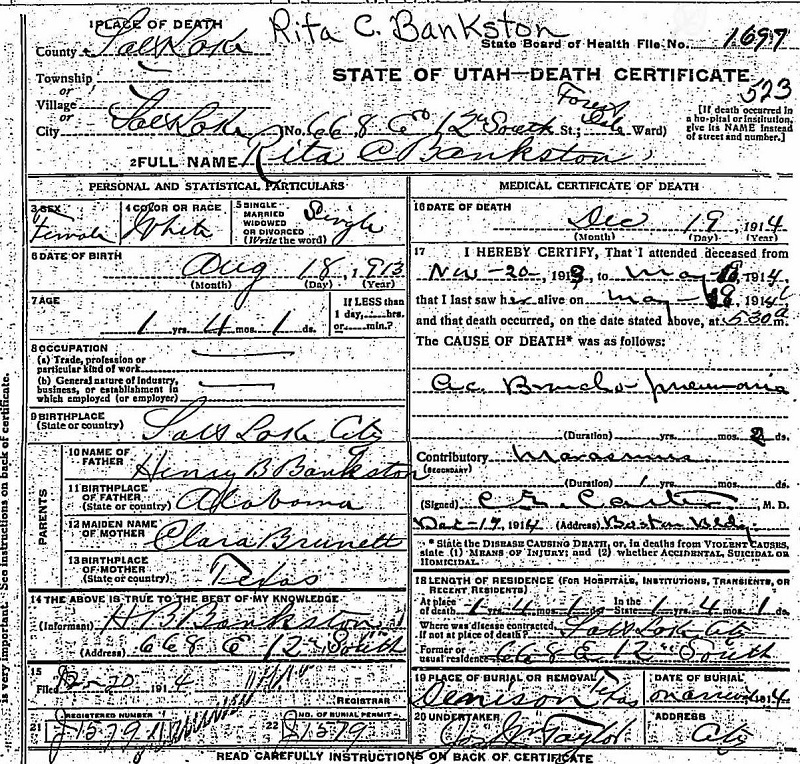 Rita C. Bankston
1 PLACE OF DEATH
County Salt Lake
State Board of Health File No. 1697
Township
or
Village
or
STATE OF UTAH—DEATH CERTIFICATE
523
City Salt Lake No. 668 E 12th South St.; Ward)
[If death occurred in a hospital or institution, give its NAME instead of street and number.]
2 FULL NAME Rita C Bankston
PERSONAL AND STATISTICAL PARTICULARS
3 SEX
Female
4 COLOR OR RACE
White
5 SINGLE
MARRIED
WIDOWED
OR DIVORCED
(Write the word)
Single
6 DATE OF BIRTH
Aug 18, 1913
(Month) (Day) (Year)
7 AGE
1 yrs. 4 mos. 1 ds.
If LESS than
1 day, hrs.
or min.?
8 OCCUPATION
(a) Trade, profession or
particular kind of work
(b) General nature of industry,
business, or establishment in
which employed (or employer)
9 BIRTHPLACE
(State or country)
Salt Lake City
PARENTS
10 NAME OF
FATHER
Henry B Bankston
11 BIRTHPLACE
OF FATHER
(State or country)
Alabama
12 MAIDEN NAME
OF MOTHER
Clara Brunett
13 BIRTHPLACE
OF MOTHER
(State or country)
Texas
14 THE ABOVE IS TRUE TO THE BEST OF MY KNOWLEDGE
(Informant) H B Bankston
(Address) 668 E 12th South
15
Filed 12-20 1914
REGISTRAR
21 REGISTERED NUMBER
J1579
22 NO. OF BURIAL PERMIT
J1579
MEDICAL CERTIFICATE OF DEATH
16 DATE OF DEATH
Dec 19, 1914
(Month) (Day) (Year)
17 I HEREBY CERTIFY, That I attended deceased from
Nov-20, 1913, to May 1914.
that I last saw her alive on May 1914
and that death occurred, on the date stated above, at 530 a m.
The CAUSE OF DEATH* was as follows:
Ac. Broncho-pneumonia
(Duration) yrs. mos. 2 ds.
Contributory Marasmus
(SECONDARY)
(Duration) 1 yrs. mos. ds.
(Signed) C. G. Carter, M. D.
Dec-19 1914 (Address) Boston Bldg.
* State the DISEASE CAUSING DEATH, or, in deaths from VIOLENT CAUSES,
state (1) MEANS OF INJURY; and (2) whether ACCIDENTAL, SUICIDAL OR
HOMICIDAL.
18 LENGTH OF RESIDENCE (FOR HOSPITALS, INSTITUTIONS, TRANSIENTS, OR
RECENT RESIDENTS)
At place
of death 1 yrs. 4 mos. 1 ds. In the
State 1 yrs. 4 mos. 1 ds.
Where was disease contracted,
if not at place of death? Salt Lake City
Former or
usual residence 668 E 12th South
19 PLACE OF BURIAL OR REMOVAL
Denison Texas
DATE OF BURIAL
on arrival 1914
20 UNDERTAKER
Jos Wm Taylor
ADDRESS
City
READ CAREFULLY INSTRUCTIONS ON BACK OF CERTIFICATE
is very important. See instructions on back of certificate.